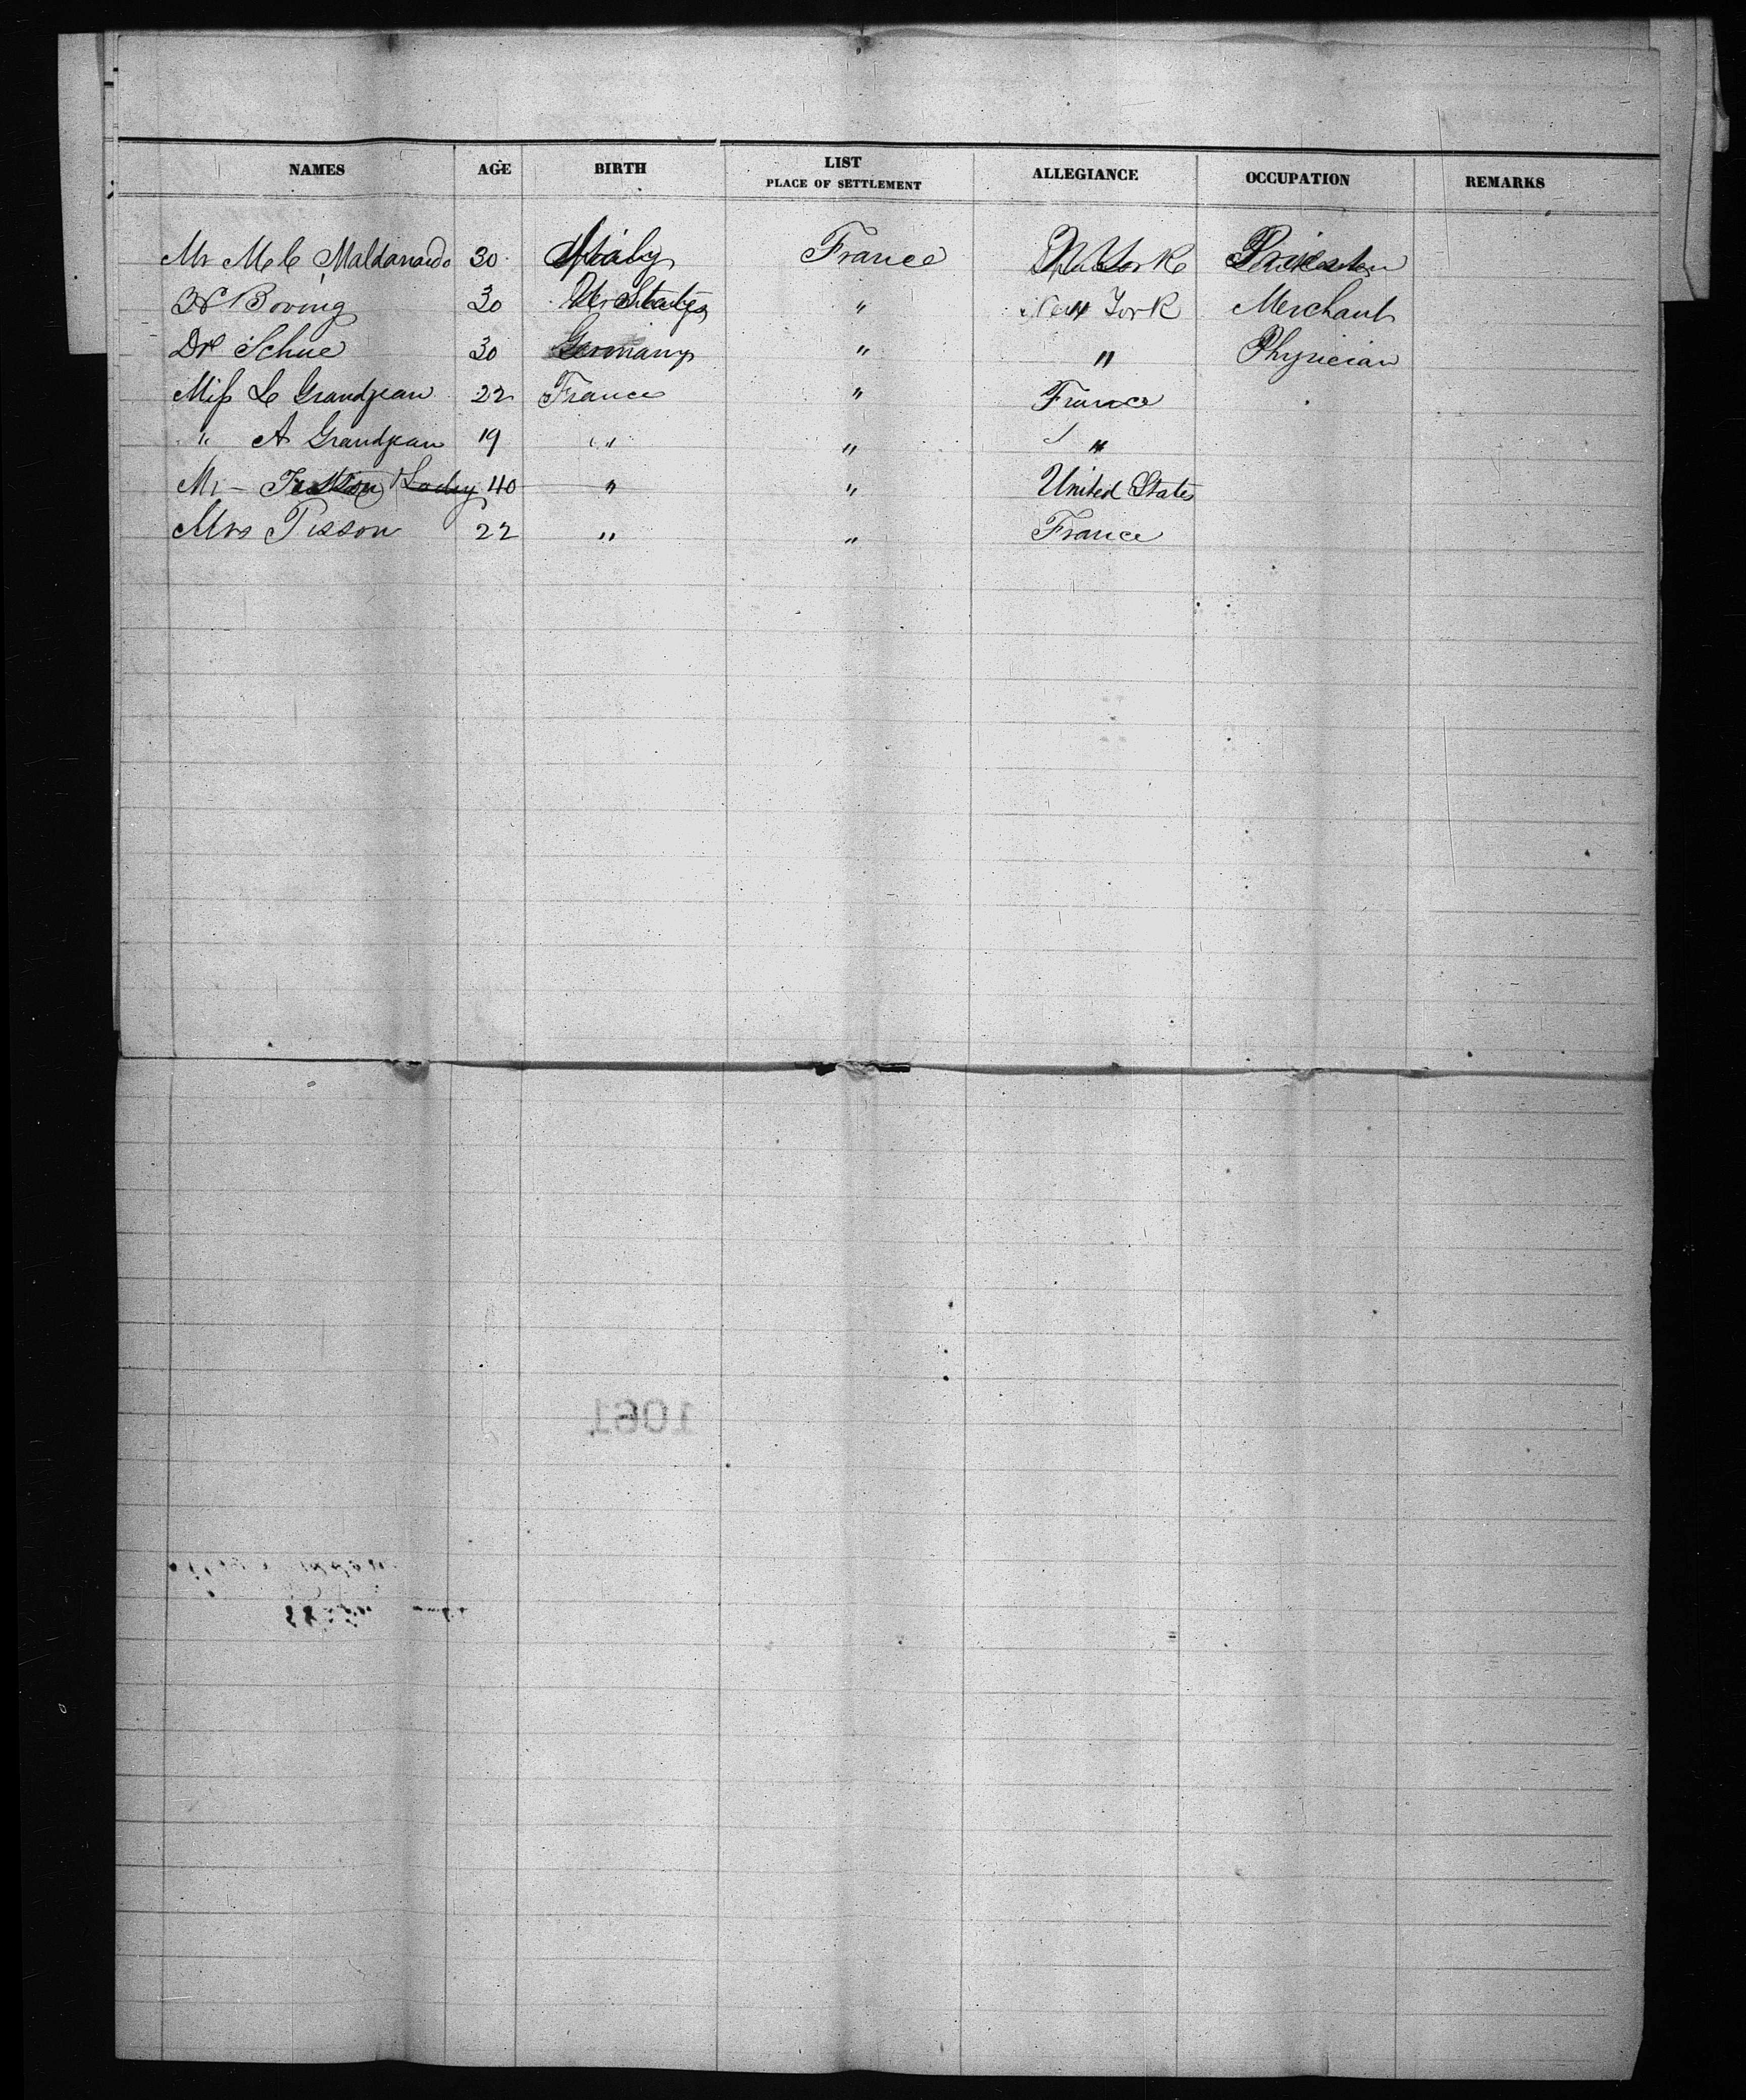 NAMES AGE BIRTH LIST PLACE OF SETTLEMENT ALLEGIANCE OCCUPATION REMARKS
Mr Maldanardo 30 France
Boving 30 " New York Merchant
Dr Schue 30 Germany " " Physician
Miss L Grandjean 22 France " France
" A Grandjean 19 " " "
Mr 40 " " United States
Mrs Pisson 22 " " France
1061